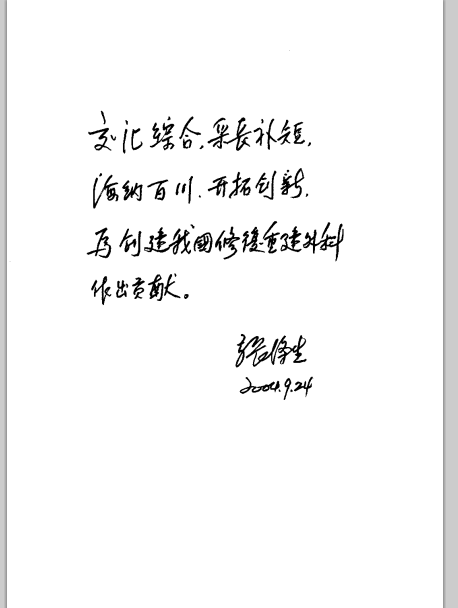 交汇综合,采长补短,
海纳百川.开拓创新.
为创建我國修復重建外科
作出贡献。
张涤生
2004.9.24